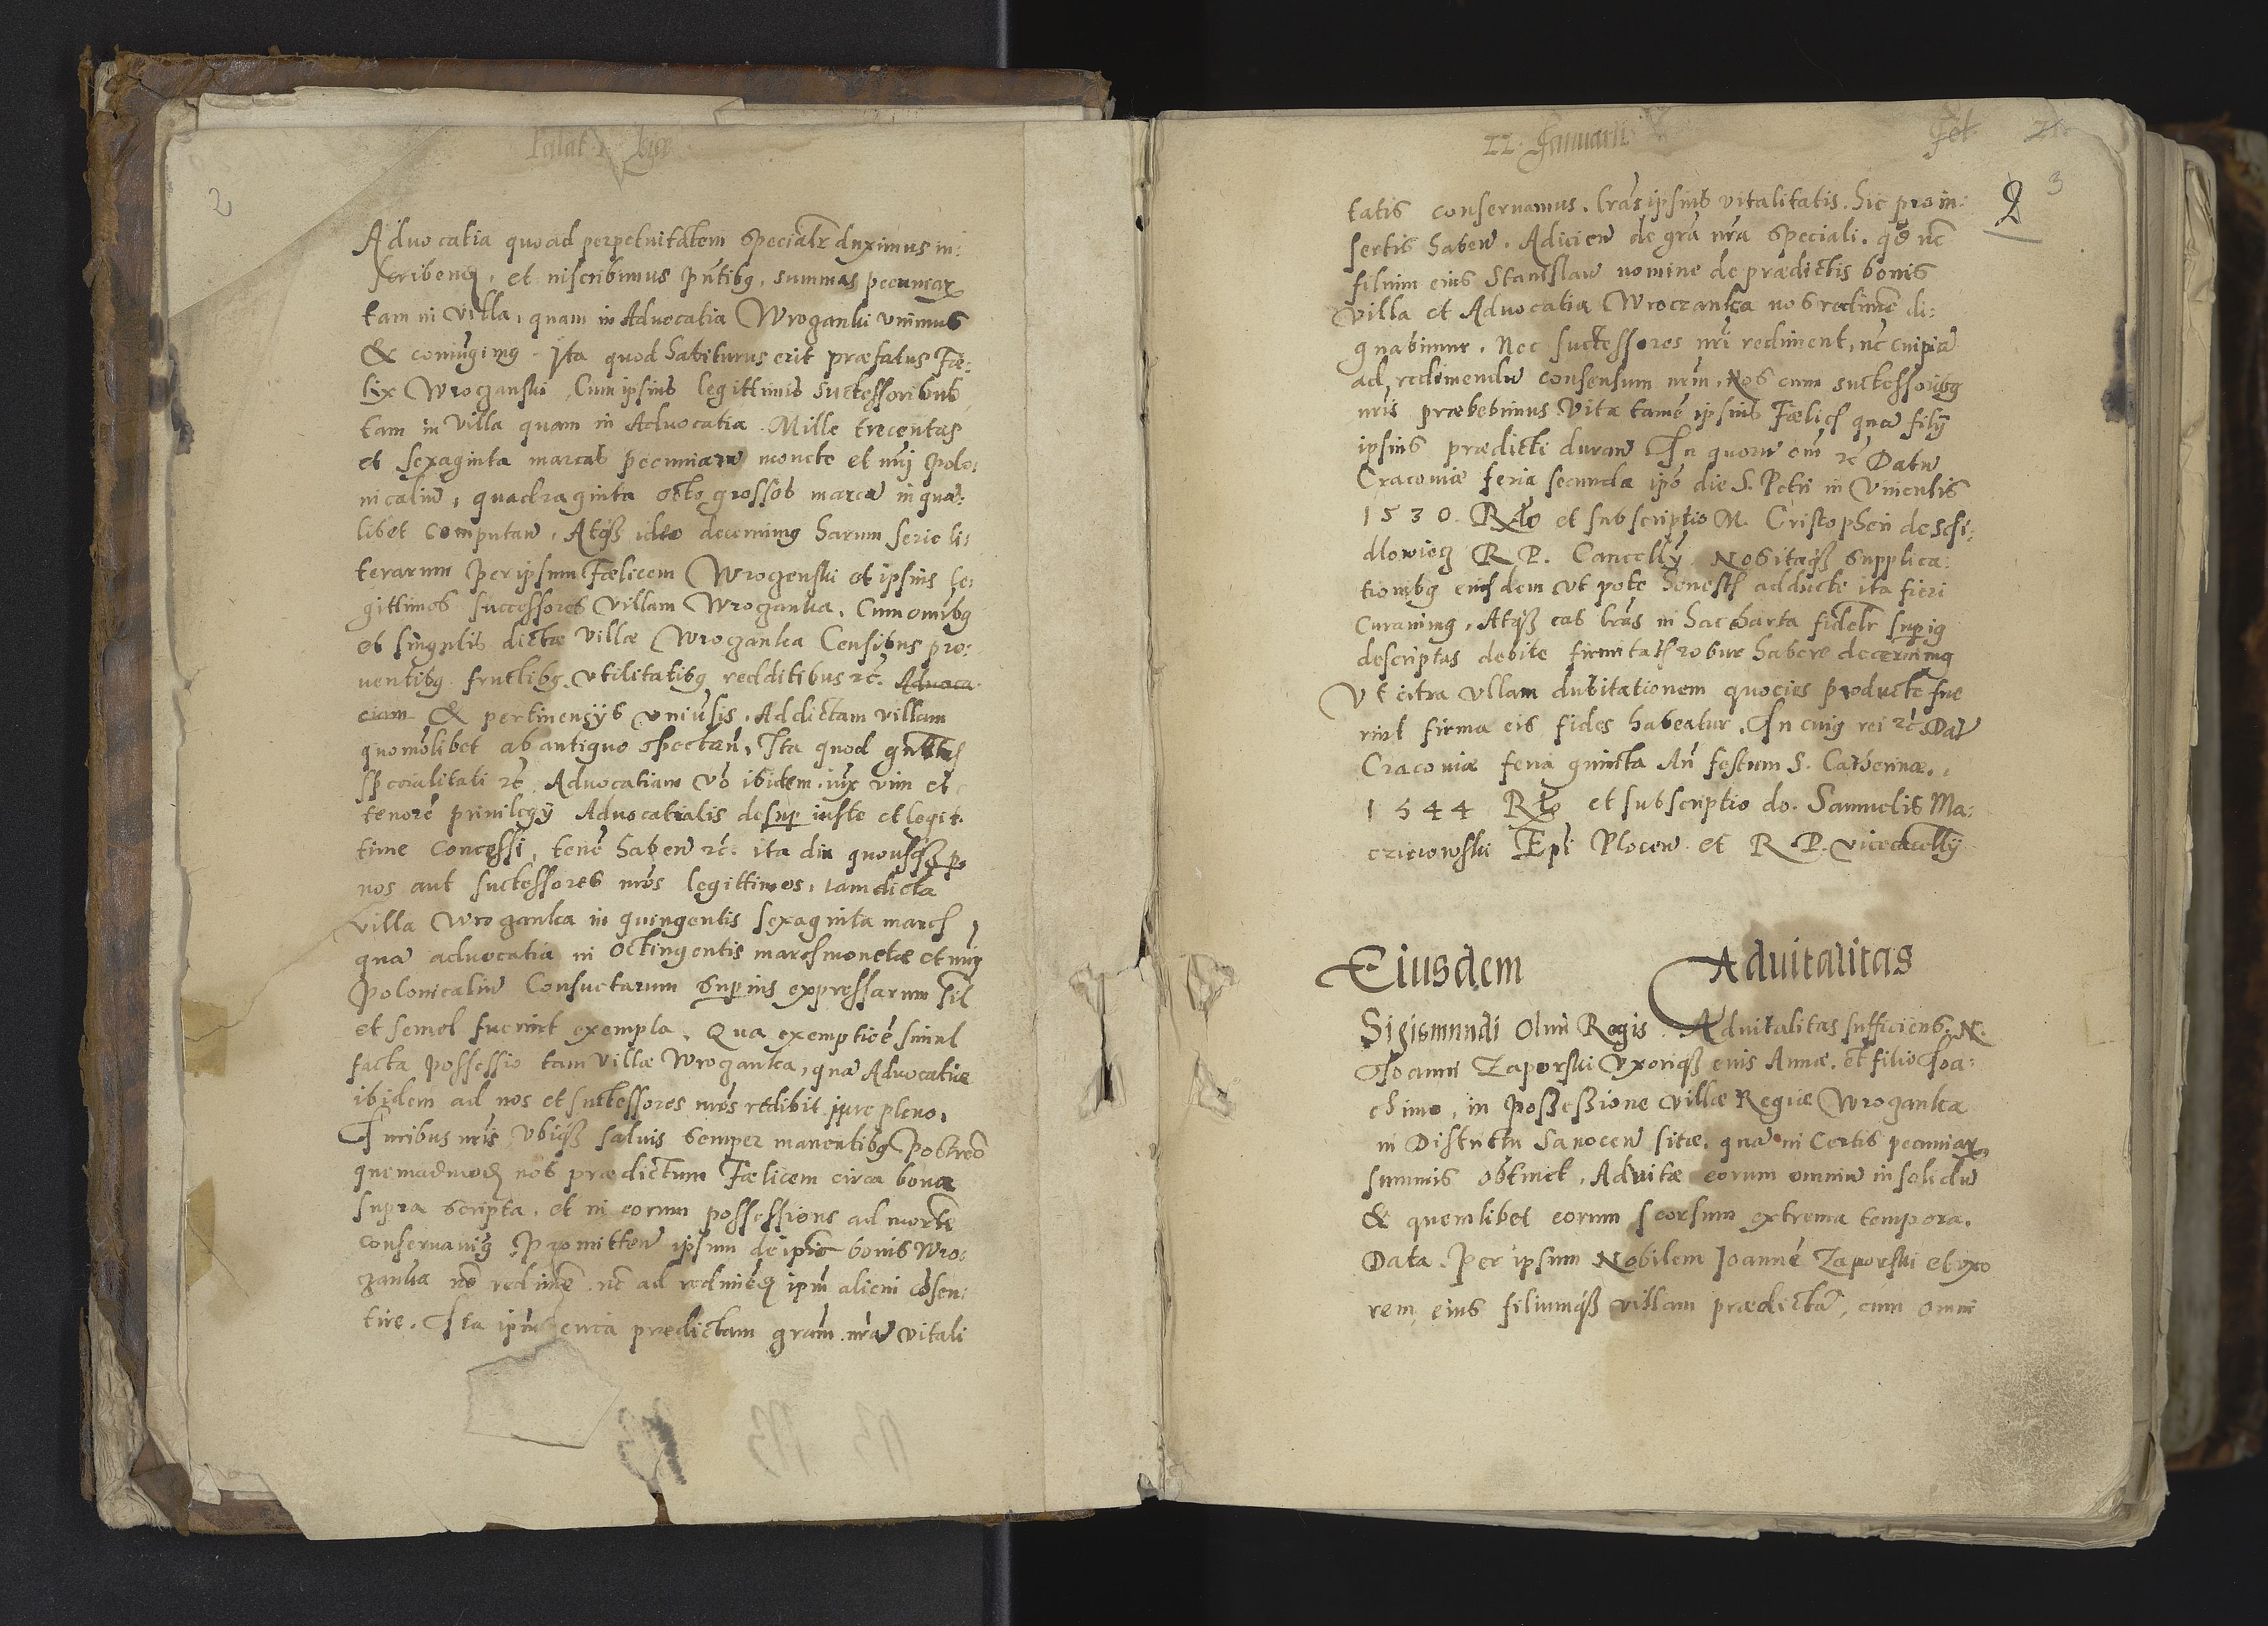 2
Advocatia quoad perpetuitatem specialr duximus in:
scribend, et inscribimus pntibg, summas pecuniar
tam in villa, quam in Advocatia Wrozanki unimus
& coniugimg. Ita quod habiturus erit præfatus Fæ:
lix Wroczanski, Cum ipsius legittimis successoribus
tam in villa quam in Advocatia. Mille trecentas
et sexaginta marcas pecuniaru monete et nuj Polo:
nicaliu, quadraginta octo grossos marca in qua:
libet computan, Atqß ideo decernimg harum serie li:
terarum Per ipsum Fælicem Wrogenski et ipsius le:
gittimos successores Villam Wrozanka, Cum omibg
et singulis dictæ villæ Wroczanka Censibus pro:
uentibg fructibg utilitatibg redditibus rc. Advoca
ciam & pertinencijs uniusis, Ad dictam villam
quomolibet ab antiquo spectan, Ita quod
specialitati rc Advocatiam vo ibidem iux vim et
tenore privilegij Advocatialis desup iuste et legit:
time concessi, tene haben rc. ita diu quousqß p
nos aut successores nros legittimos, iam dicta
villa Wrozanka in quingentis sexaginta march
qua advocatia in Octingentis march monetæ et nuj
Polonicaliu Consuetarum superius expressarum sil
et semel fuerint exempla. Qua exemptioe simul
facta possessio tam villæ Wrozanka, qua Advocatiæ
ibidem ad nos et successores nros redibit jure pleno,
Iuribus nris ubiqß salvis semper manentibg Postreo
quemadmod nos prædictum Fælicem circa bona
supra scripta, et in eorum possessione ad morte
conservavig, Promitten ipsum de ipis bonis Wro:
zanka no redime, nc ad redimed ipm alicui cosen:
tire. Ita ipm circa prædictam gram nra vitali
II. Januarii
3
2
tatis conservamus, lras ipsius vitalitatis, hic pro in:
sertis haben, Adicien de gra nra speciali, qd nc
filium eius Stanislaw nomine de prædictis bonis
villa et Advocatia Wroczanka nos redime di:
gnabimur, Nec successores nri rediment, nc cuipia
ad redimendu consensum nrm, Nos cum successoribg
nris præbebimus Vita tame ipsius Fælich qua filij
ipsius prædicti duran In quoru om rc Datu
Cracoviæ feria secunda ipo die S. Petri in Vinculis
1530. Rlo et subscriptio M. Cristopheri de Schi:
dlowiecz R P. Cancellrij Nos itaqß supplica:
tionibg eiusdem ut pote honesth adducti ita fieri
Curavimg, Atqß eas lras in hac charta fidelr supig
descriptas debite firmitath robur habere decernimg
Ut citra ullam dubitationem quocies producte fue
rint firma eis fides habeatur, In cuig rei rc Dat
Cracoviæ feria quinta An festum S. Catherinæ.,
1544 Rlo et subscriptio do. Samuelis Ma:
czieiowski Epi Plocen et R P. vicecacellrij
Eiusdem Advitalitas
Sigismundi Olim Regis Advitalitas sufficiens, N.
Joanni Zaporski Uxoriqß eius Annæ, et filio Joa:
chimo, in possessione villæ Regiæ Wrozanka
in Districtu Sanocen sitæ, qua in Certis pecuniar
summis obtinet, Ad vitæ eorum omniu in solidu
& quemlibet eorum seorsum extrema tempora,
Data, Per ipsum Nobilem Joanne Zaporski et uxo
rem eius filiumqß villam prædicta, cum omni